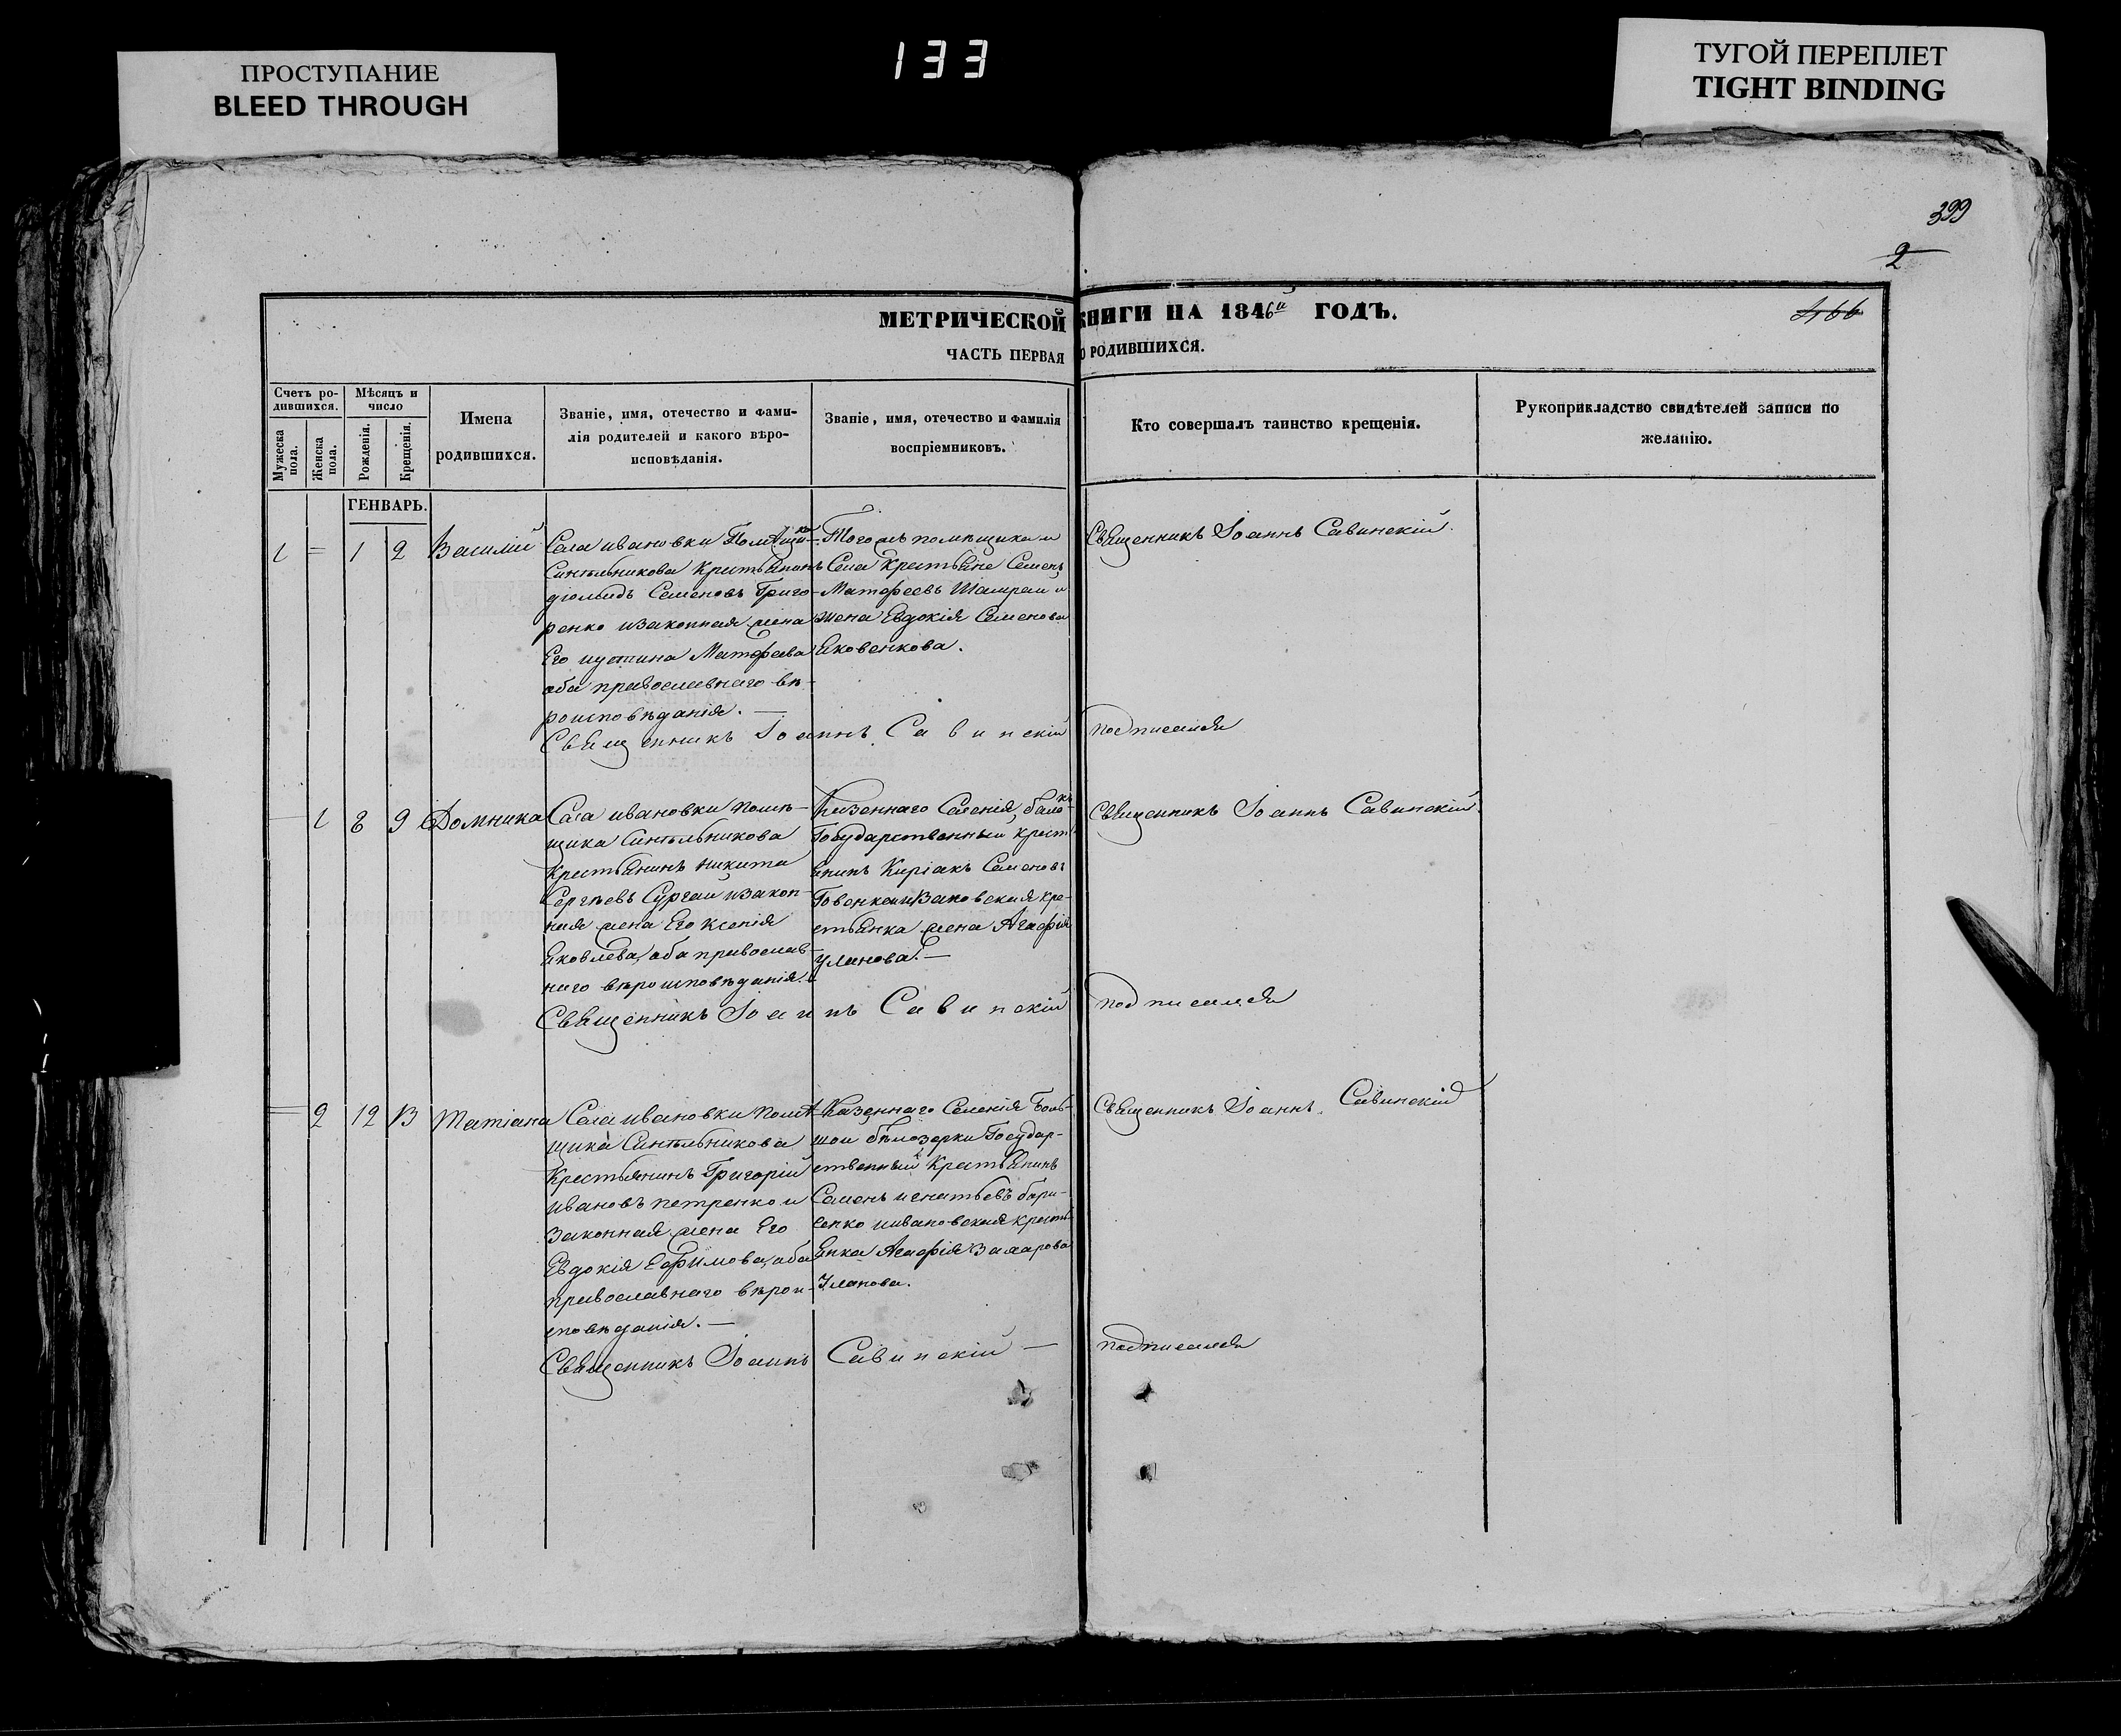 ПРОСТУПАНИЕ
BLEED THROUGH
133
ТУГОЙ ПЕРЕПЛЕТ
TIGHT BINDING
399
2
466
МЕТРИЧЕСКОЙ КНИГИ НА 1846й ГОДЪ.
ЧАСТЬ ПЕРВАЯ О РОДИВШИХСЯ.
Счетъ ро-
дившихся.
Мужеска
пола.
Женска
пола.
Мѣсяцъ и
число
Рожденія.
Крещенія.
Имена
родившихся.
Званіе, имя, отечество и фами-
лія родителей и какого вѣро-
исповѣданія.
Званіе, имя, отечество и фамилія
воспріемниковъ.
Кто совершалъ таинство крещенія.
Рукоприкладство свидѣтелей записи по
желанію.
ГЕНВАРЬ.
1 = 1 2 Василий
Села ивановки Помѣщика
Синѣльникова Крестьянинъ
Семеновъ Григо-
ренко изаконная жена
Его Матфеева
оба православнаго вѣ-
роисповѣданія. —
Тогожъ помѣщика и
Села Крестьяне Семенъ
Матфеевъ и
жена Евдокія Семенова
Яковенкова.
Священникъ Іоаннъ Савинскій.
Священникъ Іоаннъ Савинскій подписался
— 1 8 9 Домника
Села ивановки помѣ-
щика Синѣльникова
Крестьянинъ Никита
Сергѣевъ Сургаи изакон-
ная жена Его Ксенія
Яковлева, оба православ-
наго вѣроисповѣданія.
Казеннаго Селенія,
Государственный крест
янинъ Киріакъ Семеновъ
кре-
стьянка жена Агафія
Уланова. —
Священникъ Іоаннъ Савинскій
Священникъ Іоаннъ Савинскій подписался
— 2 12 13 Татіана
Села ивановки помѣ-
щика Синѣльникова
Крестьянинъ Григорій
ивановъ петренко и
Законная жена Его
Евдокія Ефимова, оба
православнаго вѣрои-
сповѣданія. —
Казеннаго Селенія Боль-
шои бѣлозерки Государ-
ственный Крестьянинъ
Семенъ игнатьевъ бори-
сенко иивановская кресть
янка Агафія Захарова
Уланова.
Священникъ Іоаннъ. Савинскій
Священникъ Іоаннъ Савинскій — подписался